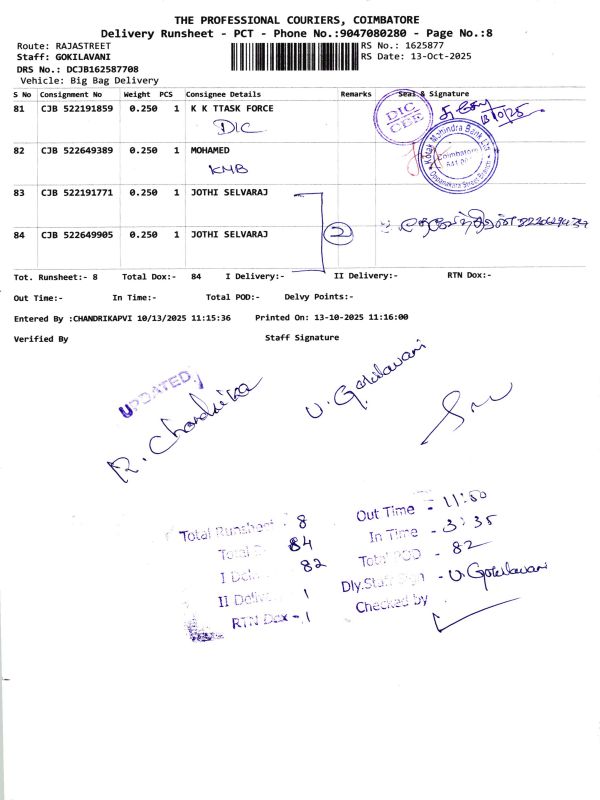 THE PROFESSIONAL COURIERS, COIMBATORE
Delivery Runsheet - PCT - Phone No.:9047080280 - Page No.:8
Route: RAJASTREET RS No.: 1625877
Staff: GOKILAVANI RS Date: 13-Oct-2025
DRS No.: DCJB162587708
Vehicle: Big Bag Delivery
S No Consignment No Weight PCS Consignee Details Remarks Seal & Signature
81 CJB 522191859 0.250 1 K K TTASK FORCE
DIC
DIC
CBE
13/10/25
82 CJB 522649389 0.250 1 MOHAMED
KMB
Kotak Mahindra Bank Ltd
Coimbatore
641 001
Oppanakara Street Branch
83 CJB 522191771 0.250 1 JOTHI SELVARAJ
2
84 CJB 522649905 0.250 1 JOTHI SELVARAJ
Tot. Runsheet:- 8 Total Dox:- 84 I Delivery:- II Delivery:- RTN Dox:-
Out Time:- In Time:- Total POD:- Delvy Points:-
Entered By :CHANDRIKAPVI 10/13/2025 11:15:36 Printed On: 13-10-2025 11:16:00
Verified By Staff Signature
UPDATED
R. Chandrika
U. Gokilavani
Total Runsheet - 8
84
82
II Delive 1
RTN Dox - 1
Out Time - 11:50
In Time - 3:35
Total POD - 82
Dly.Staff Sign - U. Gokilavani
Checked by